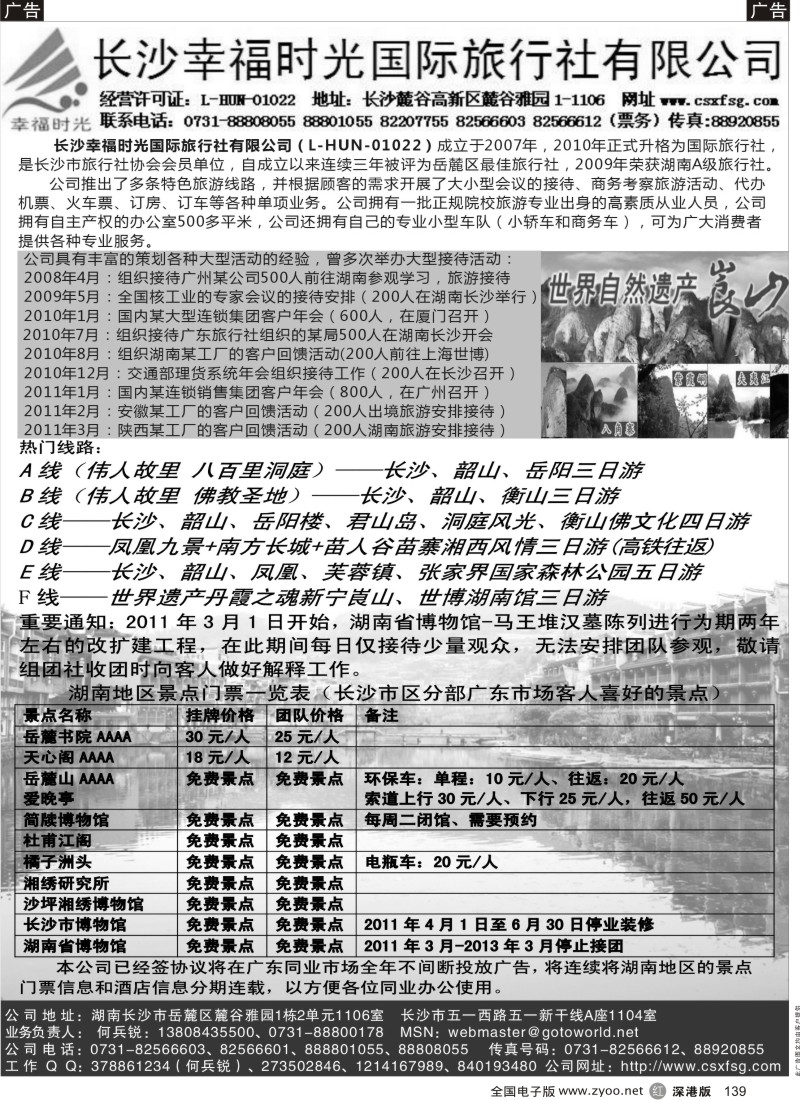 广告
广告
长沙幸福时光国际旅行社有限公司
幸福时光
经营许可证：L-HUN-01022 地址：长沙麓谷高新区麓谷雅园1-1106 网址www.csxfsg.com
联系电话：0731-88808055 88801055 82207755 82566603 82566612（票务）传真:88920855
长沙幸福时光国际旅行社有限公司（L-HUN-01022）成立于2007年，2010年正式升格为国际旅行社，
是长沙市旅行社协会会员单位，自成立以来连续三年被评为岳麓区最佳旅行社，2009年荣获湖南A级旅行社。
公司推出了多条特色旅游线路，并根据顾客的需求开展了大小型会议的接待、商务考察旅游活动、代办
机票、火车票、订房、订车等各种单项业务。公司拥有一批正规院校旅游专业出身的高素质从业人员，公司
拥有自主产权的办公室500多平米，公司还拥有自己的专业小型车队（小轿车和商务车），可为广大消费者
提供各种专业服务。
公司具有丰富的策划各种大型活动的经验，曾多次举办大型接待活动：
2008年4月：组织接待广州某公司500人前往湖南参观学习，旅游接待
2009年5月：全国核工业的专家会议的接待安排（200人在湖南长沙举行）
2010年1月：国内某大型连锁集团客户年会（600人，在厦门召开）
2010年7月：组织接待广东旅行社组织的某局500人在湖南长沙开会
2010年8月：组织湖南某工厂的客户回馈活动(200人前往上海世博)
2010年12月：交通部理货系统年会组织接待工作（200人在长沙召开）
2011年1月：国内某连锁销售集团客户年会（800人，在广州召开）
2011年2月：安徽某工厂的客户回馈活动（200人出境旅游安排接待）
2011年3月：陕西某工厂的客户回馈活动（200人湖南旅游安排接待）
世界自然遗产崀山
紫霞峒
夫夷江
八角寨
热门线路：
A线（伟人故里 八百里洞庭）——长沙、韶山、岳阳三日游
B线（伟人故里 佛教圣地）——长沙、韶山、衡山三日游
C线——长沙、韶山、岳阳楼、君山岛、洞庭风光、衡山佛文化四日游
D线——凤凰九景+南方长城+苗人谷苗寨湘西风情三日游(高铁往返)
E线——长沙、韶山、凤凰、芙蓉镇、张家界国家森林公园五日游
F线——世界遗产丹霞之魂新宁崀山、世博湖南馆三日游
重要通知：2011年3月1日开始，湖南省博物馆-马王堆汉墓陈列进行为期两年
左右的改扩建工程，在此期间每日仅接待少量观众，无法安排团队参观，敬请
组团社收团时向客人做好解释工作。
湖南地区景点门票一览表（长沙市区分部广东市场客人喜好的景点）
景点名称 挂牌价格 团队价格 备注
岳麓书院AAAA 30元/人 25元/人
天心阁AAAA 18元/人 12元/人
岳麓山AAAA 免费景点 免费景点 环保车：单程：10元/人、往返：20元/人
爱晚亭 索道上行30元/人、下行25元/人，往返50元/人
简牍博物馆 免费景点 免费景点 每周二闭馆、需要预约
杜甫江阁 免费景点 免费景点
橘子洲头 免费景点 免费景点 电瓶车：20元/人
湘绣研究所 免费景点 免费景点
沙坪湘绣博物馆 免费景点 免费景点
长沙市博物馆 免费景点 免费景点 2011年4月1日至6月30日停业装修
湖南省博物馆 免费景点 免费景点 2011年3月-2013年3月停止接团
本公司已经签协议将在广东同业市场全年不间断投放广告，将连续将湖南地区的景点
门票信息和酒店信息分期连载，以方便各位同业办公使用。
公司地址：湖南长沙市岳麓区麓谷雅园1栋2单元1106室 长沙市五一西路五一新干线A座1104室
业务负责人：何兵锐：13808435500、0731-88800178 MSN：webmaster@gotoworld.net
公司电话：0731-82566603、82566601、888801055、88808055 传真号码：0731-82566612、88920855
工作QQ：378861234（何兵锐）、273502846、1214167989、840193480 公司网址：http://www.csxfsg.com
全国电子版 www.zyoo.net 红 深港版 139